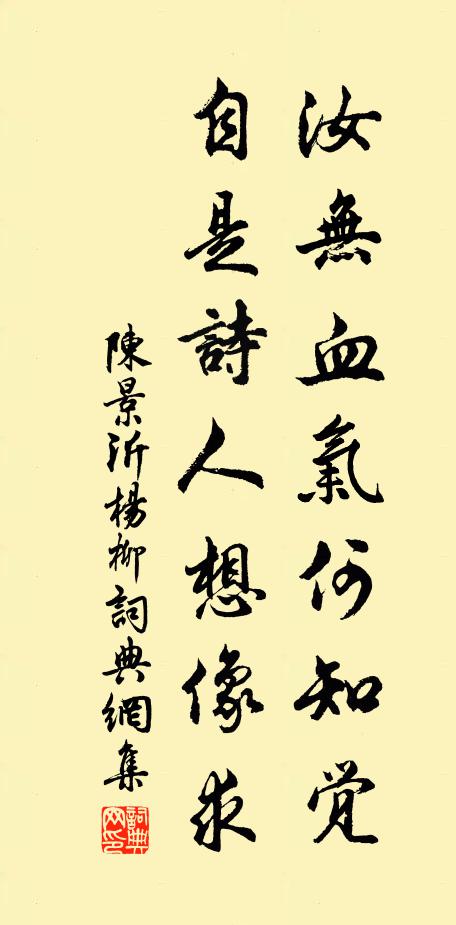 汝無血氣何知覚
自是詩人想像求
陳景沂楊柳詞典網集
詞典网印